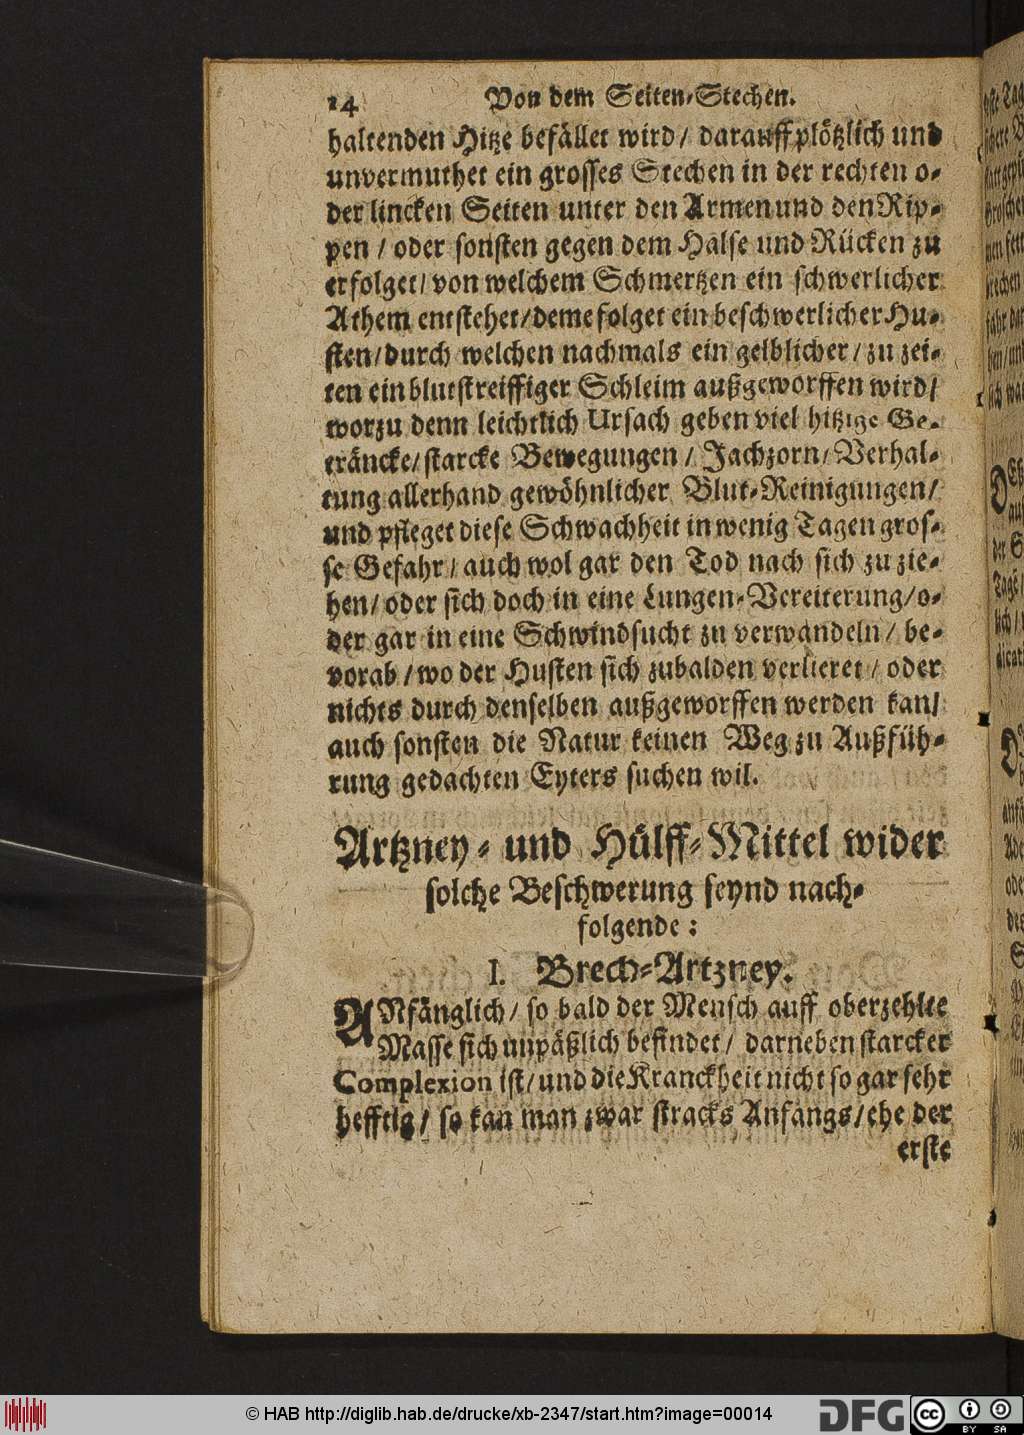 14 Von dem Seiten-Stechen.
haltenden Hitze befället wird/ darauff plötzlich und
unvermuthet ein grosses Stechen in der rechten o-
der lincken Seiten unter den Armen und den Rip-
pen / oder sonsten gegen dem Halse und Rücken zu
erfolget/ von welchem Schmertzen ein schwerlicher
Athem entstehet/ deme folget ein beschwerlicher Hu-
sten/ durch welchen nachmals ein gelblicher/ zu zei-
ten ein blutstreiffiger Schleim außgeworffen wird/
worzu denn leichtlich Ursach geben viel hitzige Ge-
träncke/ starcke Bewegungen / Jachzorn/ Verhal-
tung allerhand gewöhnlicher Blut-Reinigungen/
und pfleget diese Schwachheit in wenig Tagen gros-
se Gefahr/ auch wol gar den Tod nach sich zu zie-
hen/ oder sich doch in eine Lungen-Vereiterung/ o-
der gar in eine Schwindsucht zu verwandeln/ be-
vorab / wo der Husten sich zubalden verlieret / oder
nichts durch denselben außgeworffen werden kan/
auch sonsten die Natur keinen Weg zu Außfüh-
rung gedachten Eyters suchen wil.
Artzney- und Hülff-Mittel wider
solche Beschwerung seynd nach-
folgende:
I. Brech-Artzney.
ANfänglich/ so bald der Mensch auff oberzehlte
Masse sich unpäßlich befindet/ darneben starcker
Complexion ist/ und die Kranckheit nicht so gar sehr
hefftig/ so kan man zwar stracks Anfangs/ ehe der
erste
© HAB http://diglib.hab.de/drucke/xb-2347/start.htm?image=00014
DFG
cc
BY SA